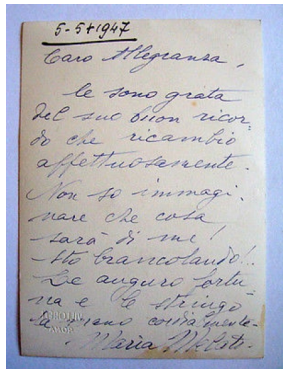 5-5-1947
Caro Allegranza,
le sono grata
del suo buon ricor-
do che ricambio
affettuosamente.
Non so immagi-
nare che cosa
sarà di me!
Sto brancolando!.
Le auguro fortu-
na e le stringo
la mano cordialmente-
Maria